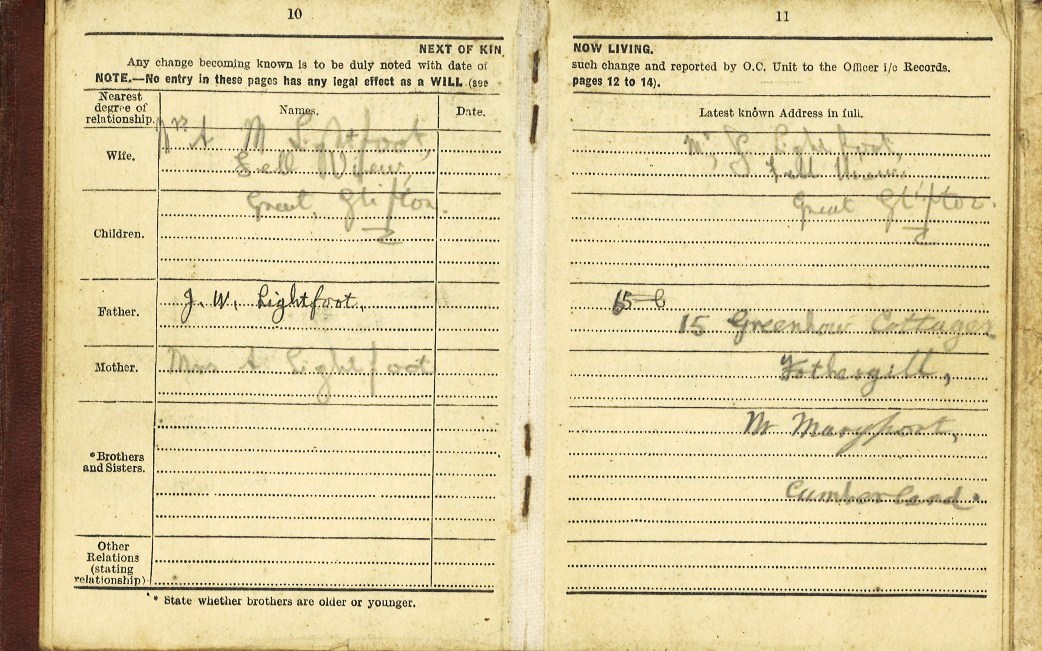 10
NEXT OF KIN
Any change becoming known is to be duly noted with date of
NOTE.—No entry in these pages has any legal effect as a WILL (see
Nearest degree of relationship.
Names.
Date.
Wife.
A M Lightfoot,
Fell View,
Great Clifton.
Children.
Father.
J. W. Lightfoot,
Mother.
Mrs A Lightfoot
*Brothers and Sisters.
Other Relations (stating relationship)
* State whether brothers are older or younger.
11
NOW LIVING.
such change and reported by O.C. Unit to the Officer i/c Records.
pages 12 to 14).
Latest known Address in full.
Lightfoot,
Fell View,
Great Clifton.
15 Greenhow Cottages
Fothergill,
Nr Maryport,
Cumberland.